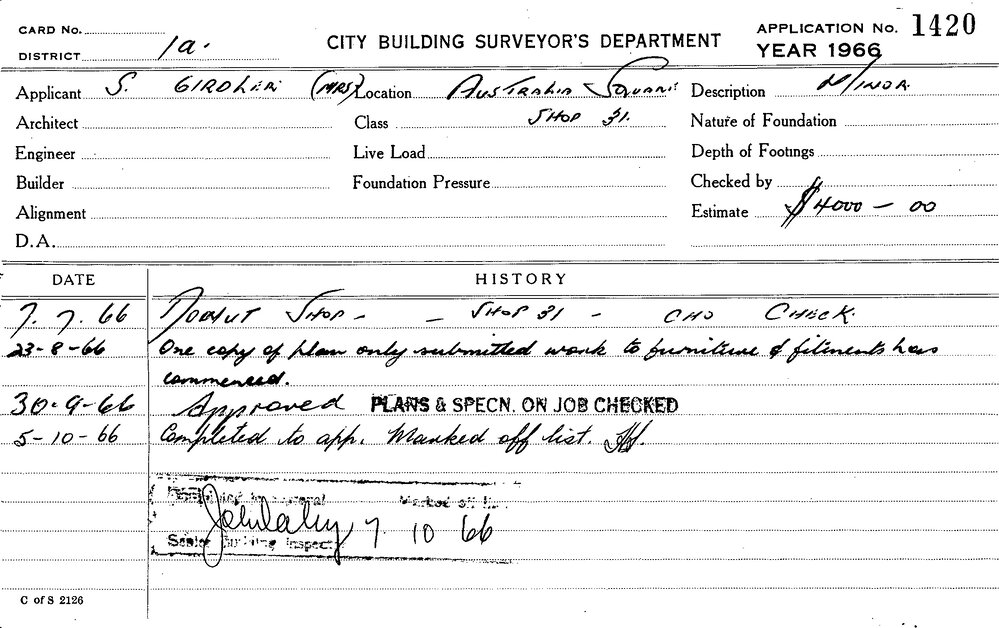 CARD No.
DISTRICT 1a.
CITY BUILDING SURVEYOR'S DEPARTMENT
APPLICATION No. 1420
YEAR 1966
Applicant S. GIRDLER (MRS) Location AUSTRALIA SQUARE Description MINOR
Architect Class SHOP 31. Nature of Foundation
Engineer Live Load Depth of Footings
Builder Foundation Pressure Checked by
Alignment Estimate $4000 — 00
D.A.
DATE HISTORY
7. 7. 66 DONUT SHOP - - SHOP 31 - CHO CHECK
23-8-66 One copy of plan only submitted work to furniture & fitments has
commenced.
30-9-66 Approved PLANS & SPECN. ON JOB CHECKED
5-10-66 Completed to app. Marked off list.
Marked off
7 10 66
Senior Building Inspector
C of S 2126